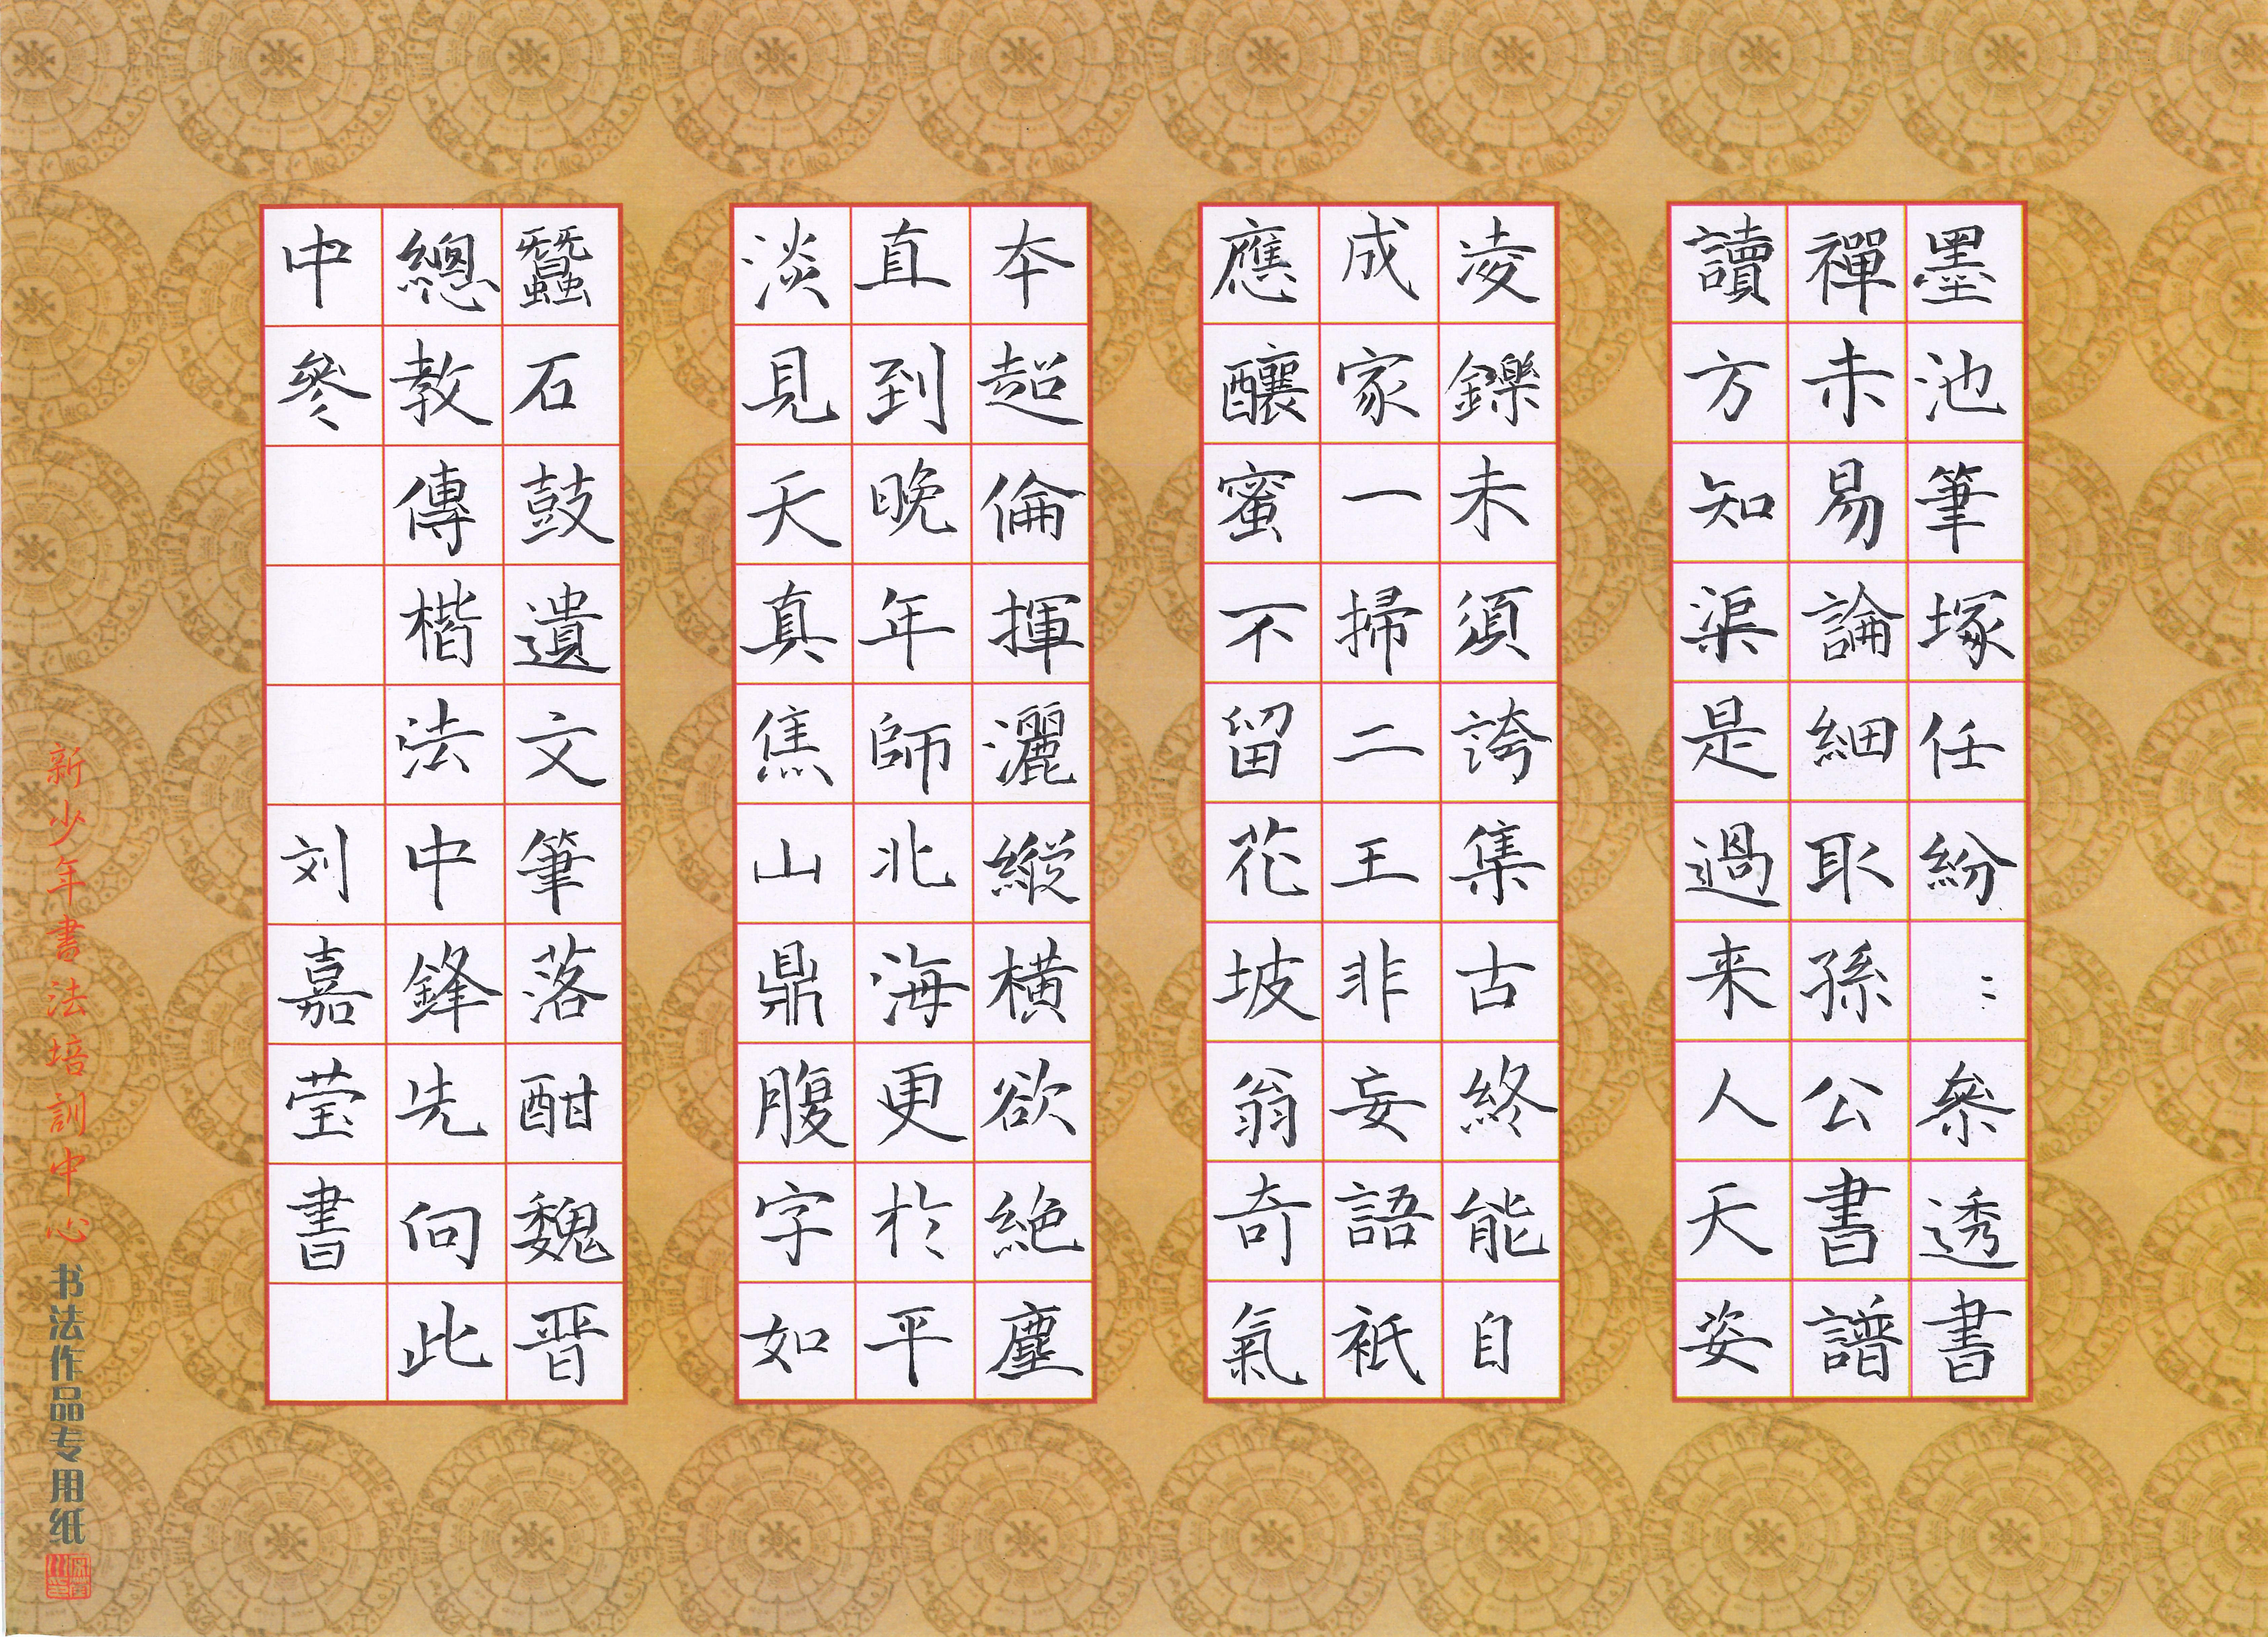 墨池筆塚任紛：參透書
禪未易論細取孫公書譜
讀方知渠是過来人天姿
凌鑠未須誇集古終能自
成家一掃二王非妄語祇
應釀蜜不留花坡翁奇氣
本超倫揮灑縱橫欲絕塵
直到晚年師北海更於平
淡見天真焦山鼎腹字如
蠶石鼓遺文筆落酣魏晉
總教傳楷法中鋒先向此
中參
刘嘉莹書
新少年書法培訓中心
书法作品专用纸